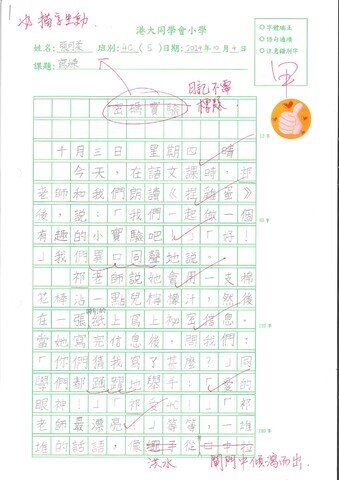 描寫生動
港大同學會小學
姓名: 班別: 4C (5) 日期: 2024年10月4日
課題:
字體端正
語句通順
注意錯別字
甲
日記不需標題
密碼實驗
十月三日 星期四 晴
今天,在語文課時,祁
老師和我們朗讀《捏雞蛋》
後,說:「我們一起做一個
有趣的小實驗吧!」「好!
」我們異口同聲地說。
祁老師說她會用一支棉
花棒沾一點兒檸檬汁,然後
在一張紙上寫上秘密信息。
當她寫完信息後,問我們:
「你們猜我寫了甚麼?」同
學們都踴躍地舉手:「愛的
眼神!」「我愛4C!」「祁
老師最漂亮!」等等,一堆
堆的話語,像
洪水 閘門中傾瀉而出.